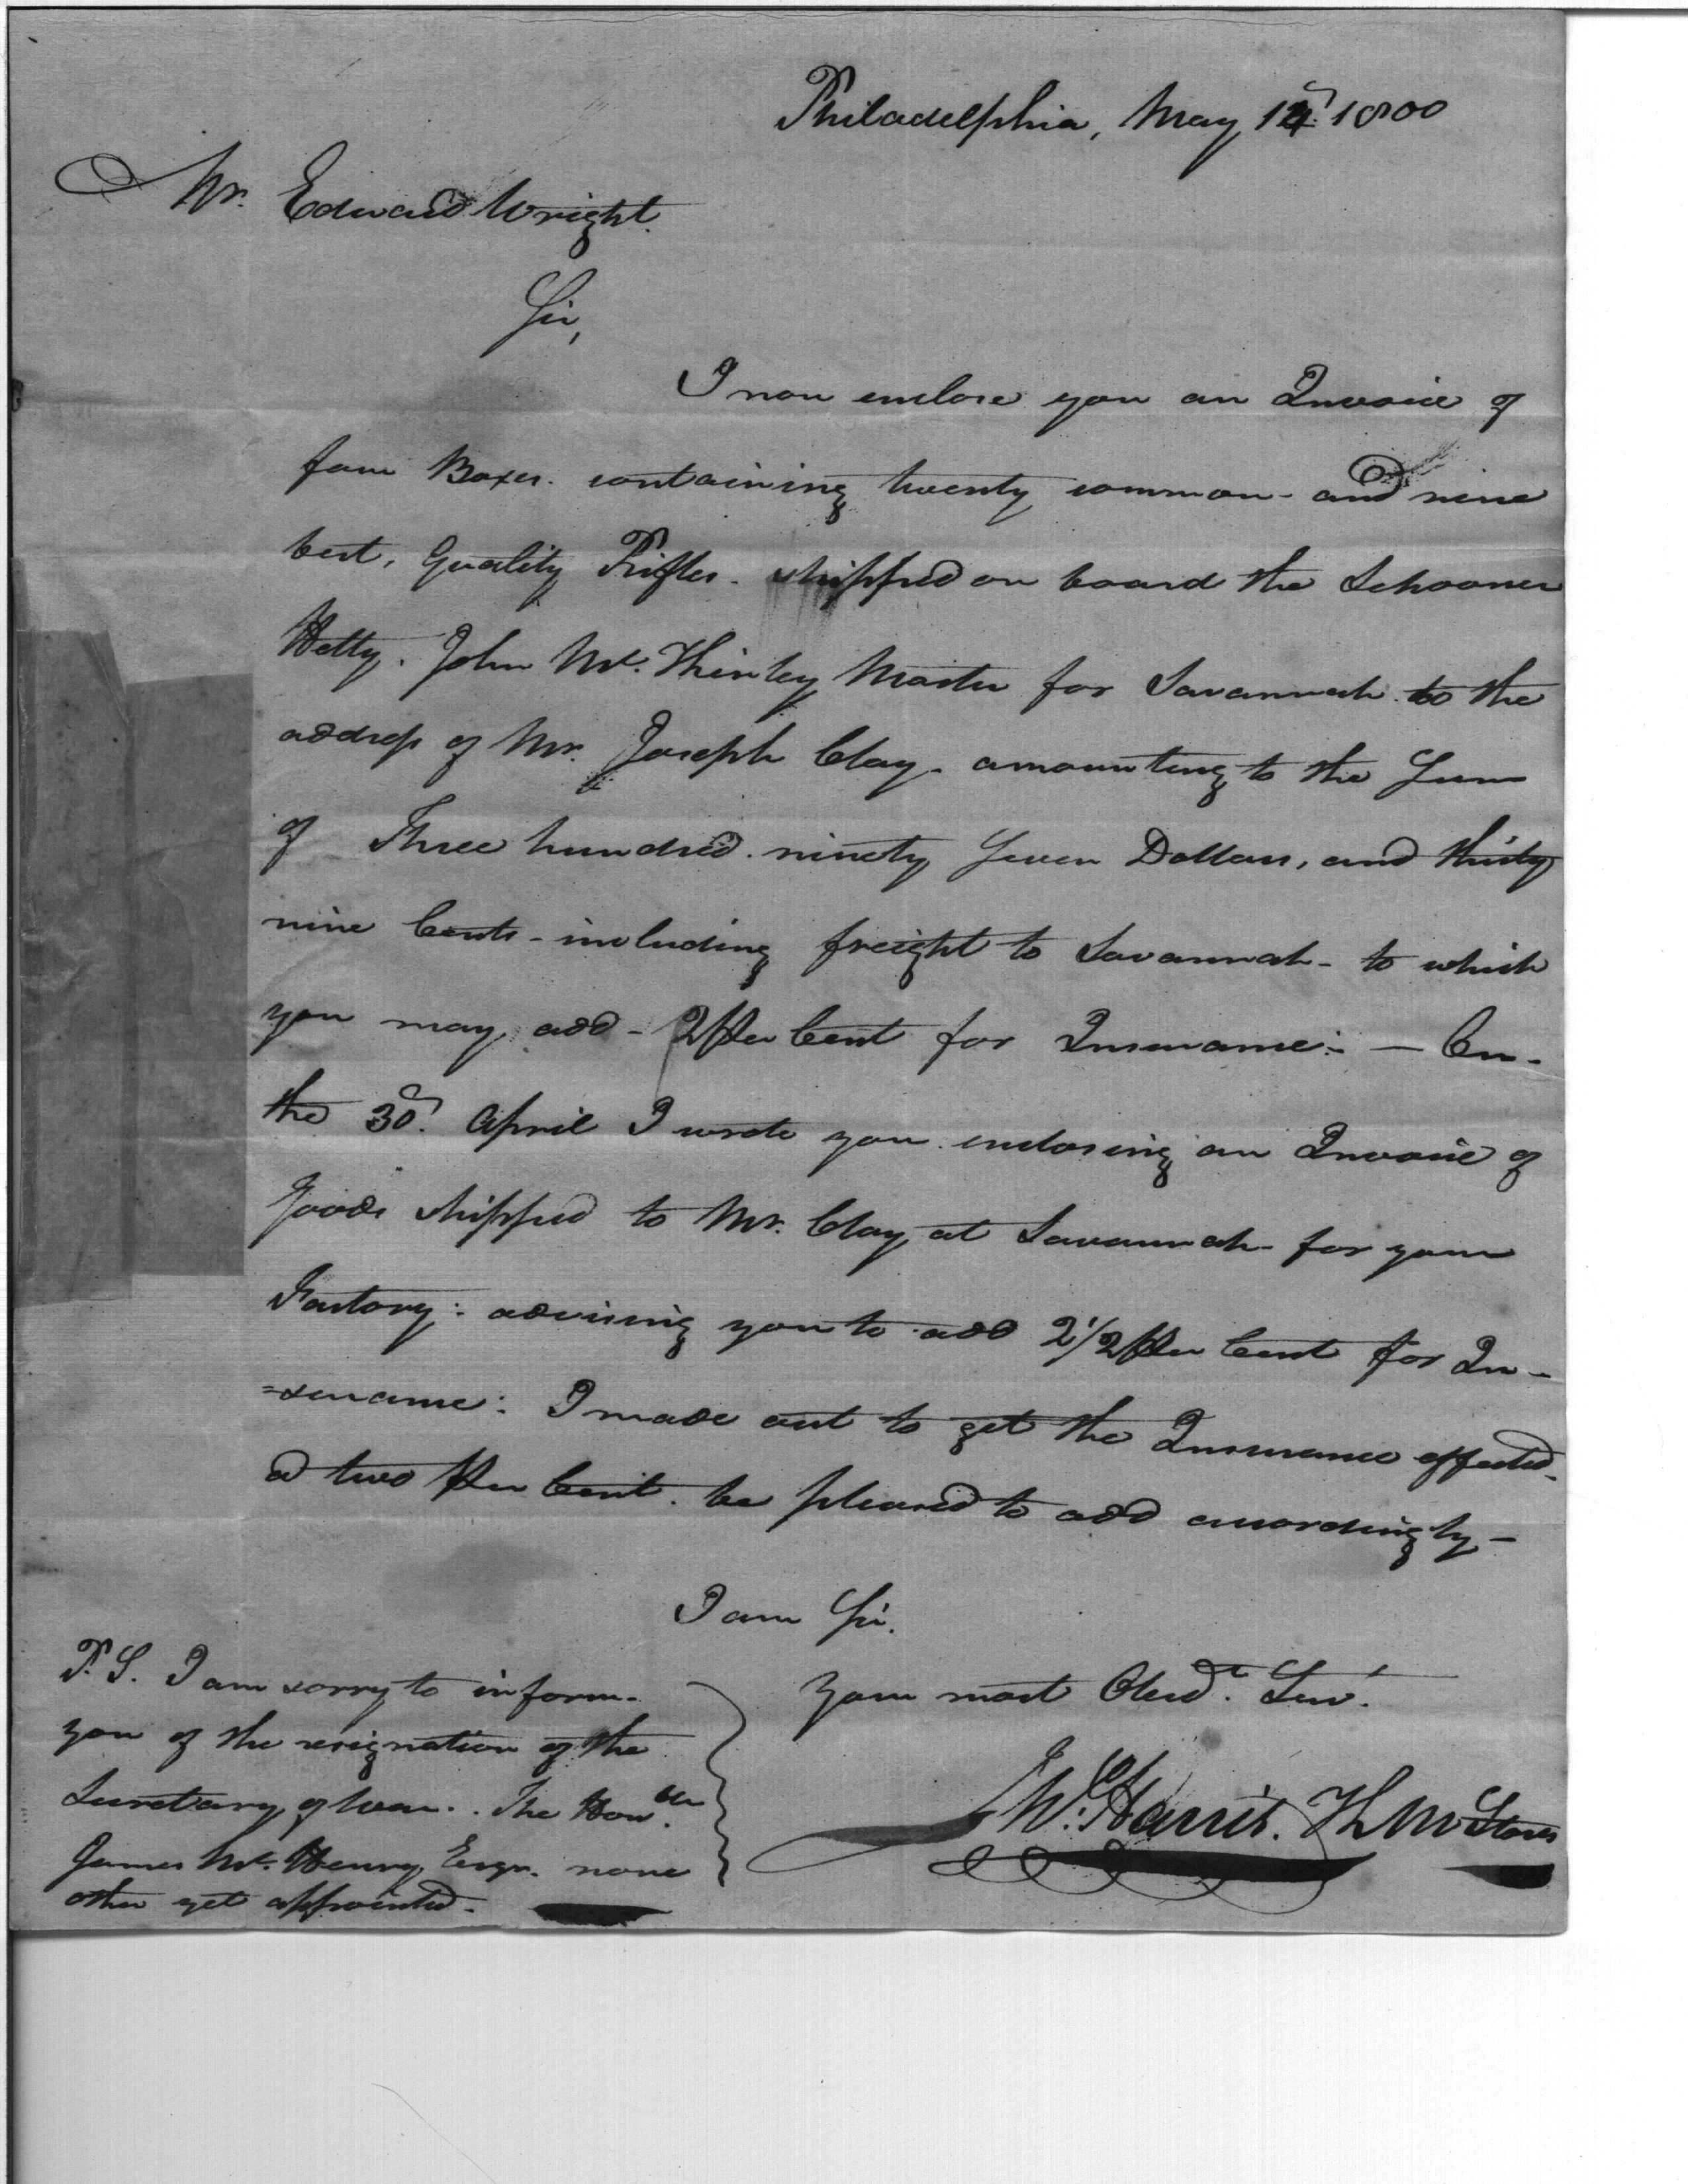 Philadelphia, May 12th 1800
Mr. Edward Wright.
Sir,
I now enclose you an Invoice of
four Boxes. containing twenty common - and nine
best, Quality Rifles - shipped on board the Schooner
Hetty. John Mc. Master for Savannah. to the
address of Mr. Joseph Clay - amounting to the Sum
of Three hundred. ninety Seven Dollars, and thirty
nine Cents - including freight to Savannah - to which
you may add - 2 Per Cent for Insurance: - On -
the 30th. April I wrote you enclosing an Invoice of
Goods shipped to Mr. Clay at Savannah - for your
Factory: advising you to add 2 1/2 Per Cent for In-
=surance: I made out to get the Insurance effected -
a two Per Cent. be pleased to add accordingly -
I am Sir.
Your most Obedt. Sert.
W. Harris. K M Stores
P. S. I am sorry to inform.
you of the resignation of the
Secretary of War. . The Honble.
James Mc. Henry, Esqr. none
other yet appointed.